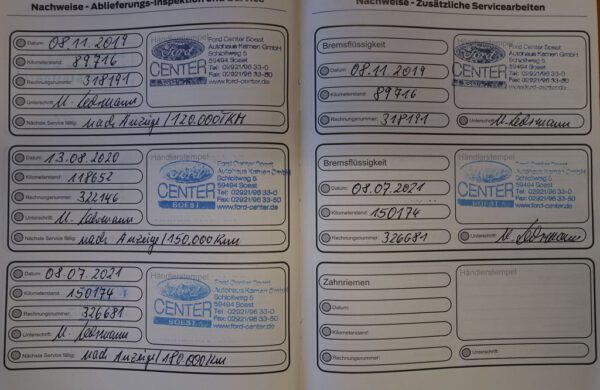 Nachweise - Ablieferungs-Inspektion und Service
Datum: 08.11.2019
Kilometerstand: 89716
Rechnungsnummer: 318191
Unterschrift:
Nächste Service fällig: nach Anzeige/120.000 KM
Händlerstempel
Ford
CENTER
SOEST
Ford Center Soest
Autohaus Kamen GmbH
Schloitweg 5
59494 Soest
Tel: 02921/96 33-0
Fax: 02921/96 33-50
www.ford-center.de
Datum: 13.08.2020
Kilometerstand: 118652
Rechnungsnummer: 322146
Unterschrift:
Nächste Service fällig: nach Anzeige/150.000 Km
Händlerstempel
Ford
CENTER
SOEST
Ford Center Soest
Autohaus Kamen GmbH
Schloitweg 5
59494 Soest
Tel: 02921/96 33-0
Fax: 02921/96 33-50
www.ford-center.de
Datum: 08.07.2021
Kilometerstand: 150174
Rechnungsnummer: 326681
Unterschrift:
Nächste Service fällig: nach Anzeige/180.000 Km
Händlerstempel
Ford
CENTER
SOEST
Ford Center Soest
Autohaus Kamen GmbH
Schloitweg 5
59494 Soest
Tel: 02921/96 33-0
Fax: 02921/96 33-50
www.ford-center.de
Nachweise - Zusätzliche Servicearbeiten
Bremsflüssigkeit
Datum: 08.11.2019
Kilometerstand: 89716
Rechnungsnummer: 318191
Händlerstempel
Ford
CENTER
SOEST
Ford Center Soest
Autohaus Kamen GmbH
Schloitweg 5
59494 Soest
Tel: 02921/96 33-0
Fax: 02921/96 33-50
www.ford-center.de
Unterschrift:
Bremsflüssigkeit
Datum: 08.07.2021
Kilometerstand: 150174
Rechnungsnummer: 326681
Händlerstempel
Ford
CENTER
SOEST
Ford Center Soest
Autohaus Kamen GmbH
Schloitweg 5
59494 Soest
Tel: 02921/96 33-0
Fax: 02921/96 33-50
www.ford-center.de
Unterschrift:
Zahnriemen
Datum:
Kilometerstand:
Rechnungsnummer:
Händlerstempel
Unterschrift: